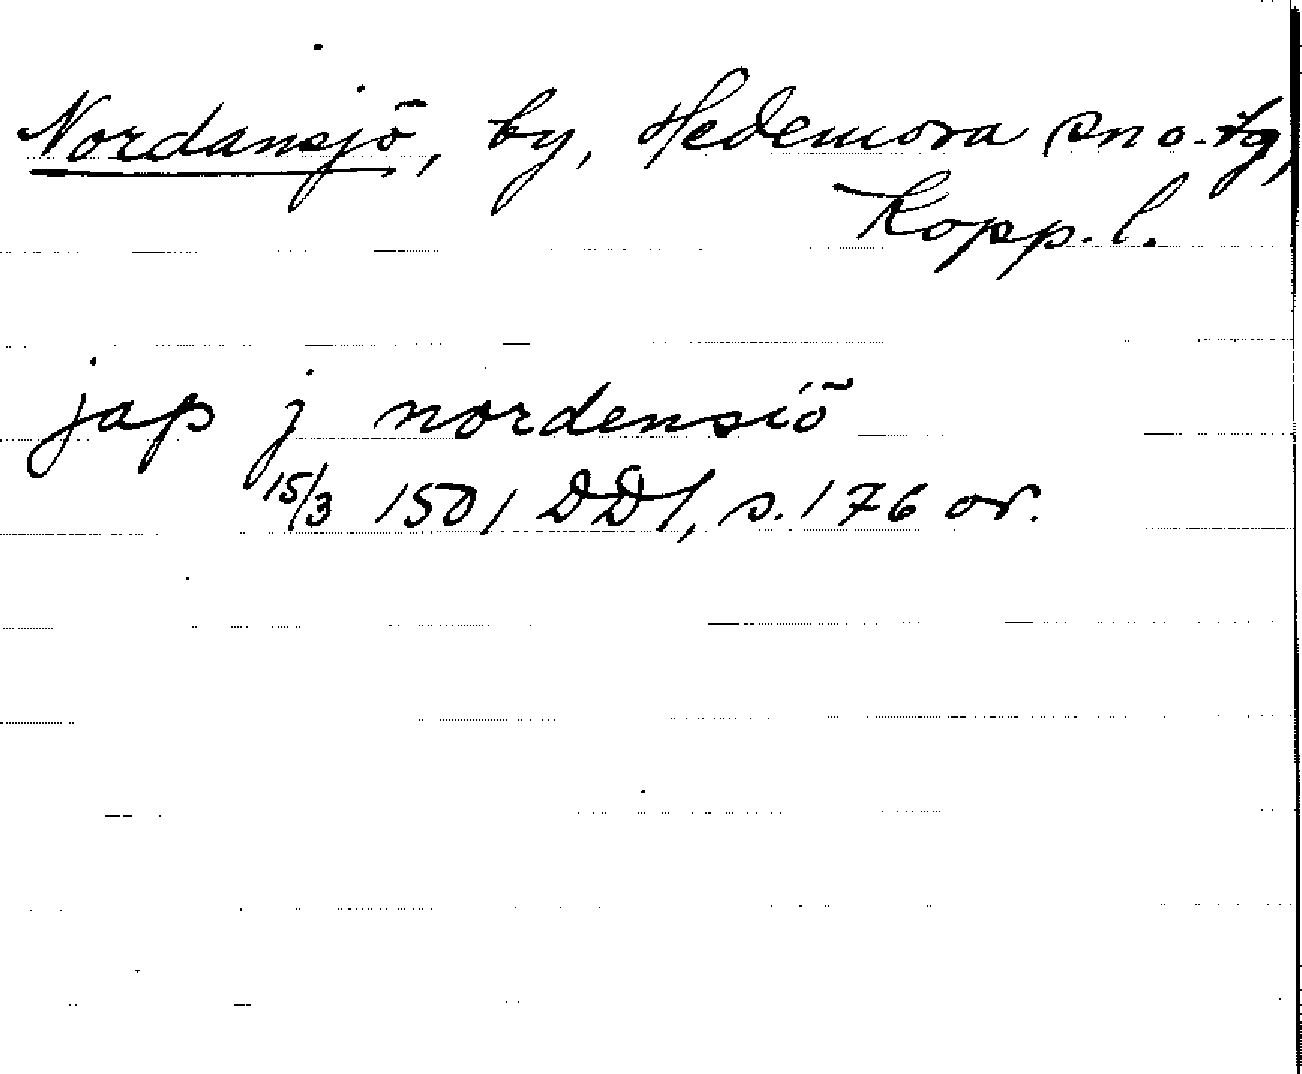 Nordansjö, by, Hedemora sn o. tg,
Kopp. l.
jap j nordensiö
15/3 1501 DD1, s. 176 or.